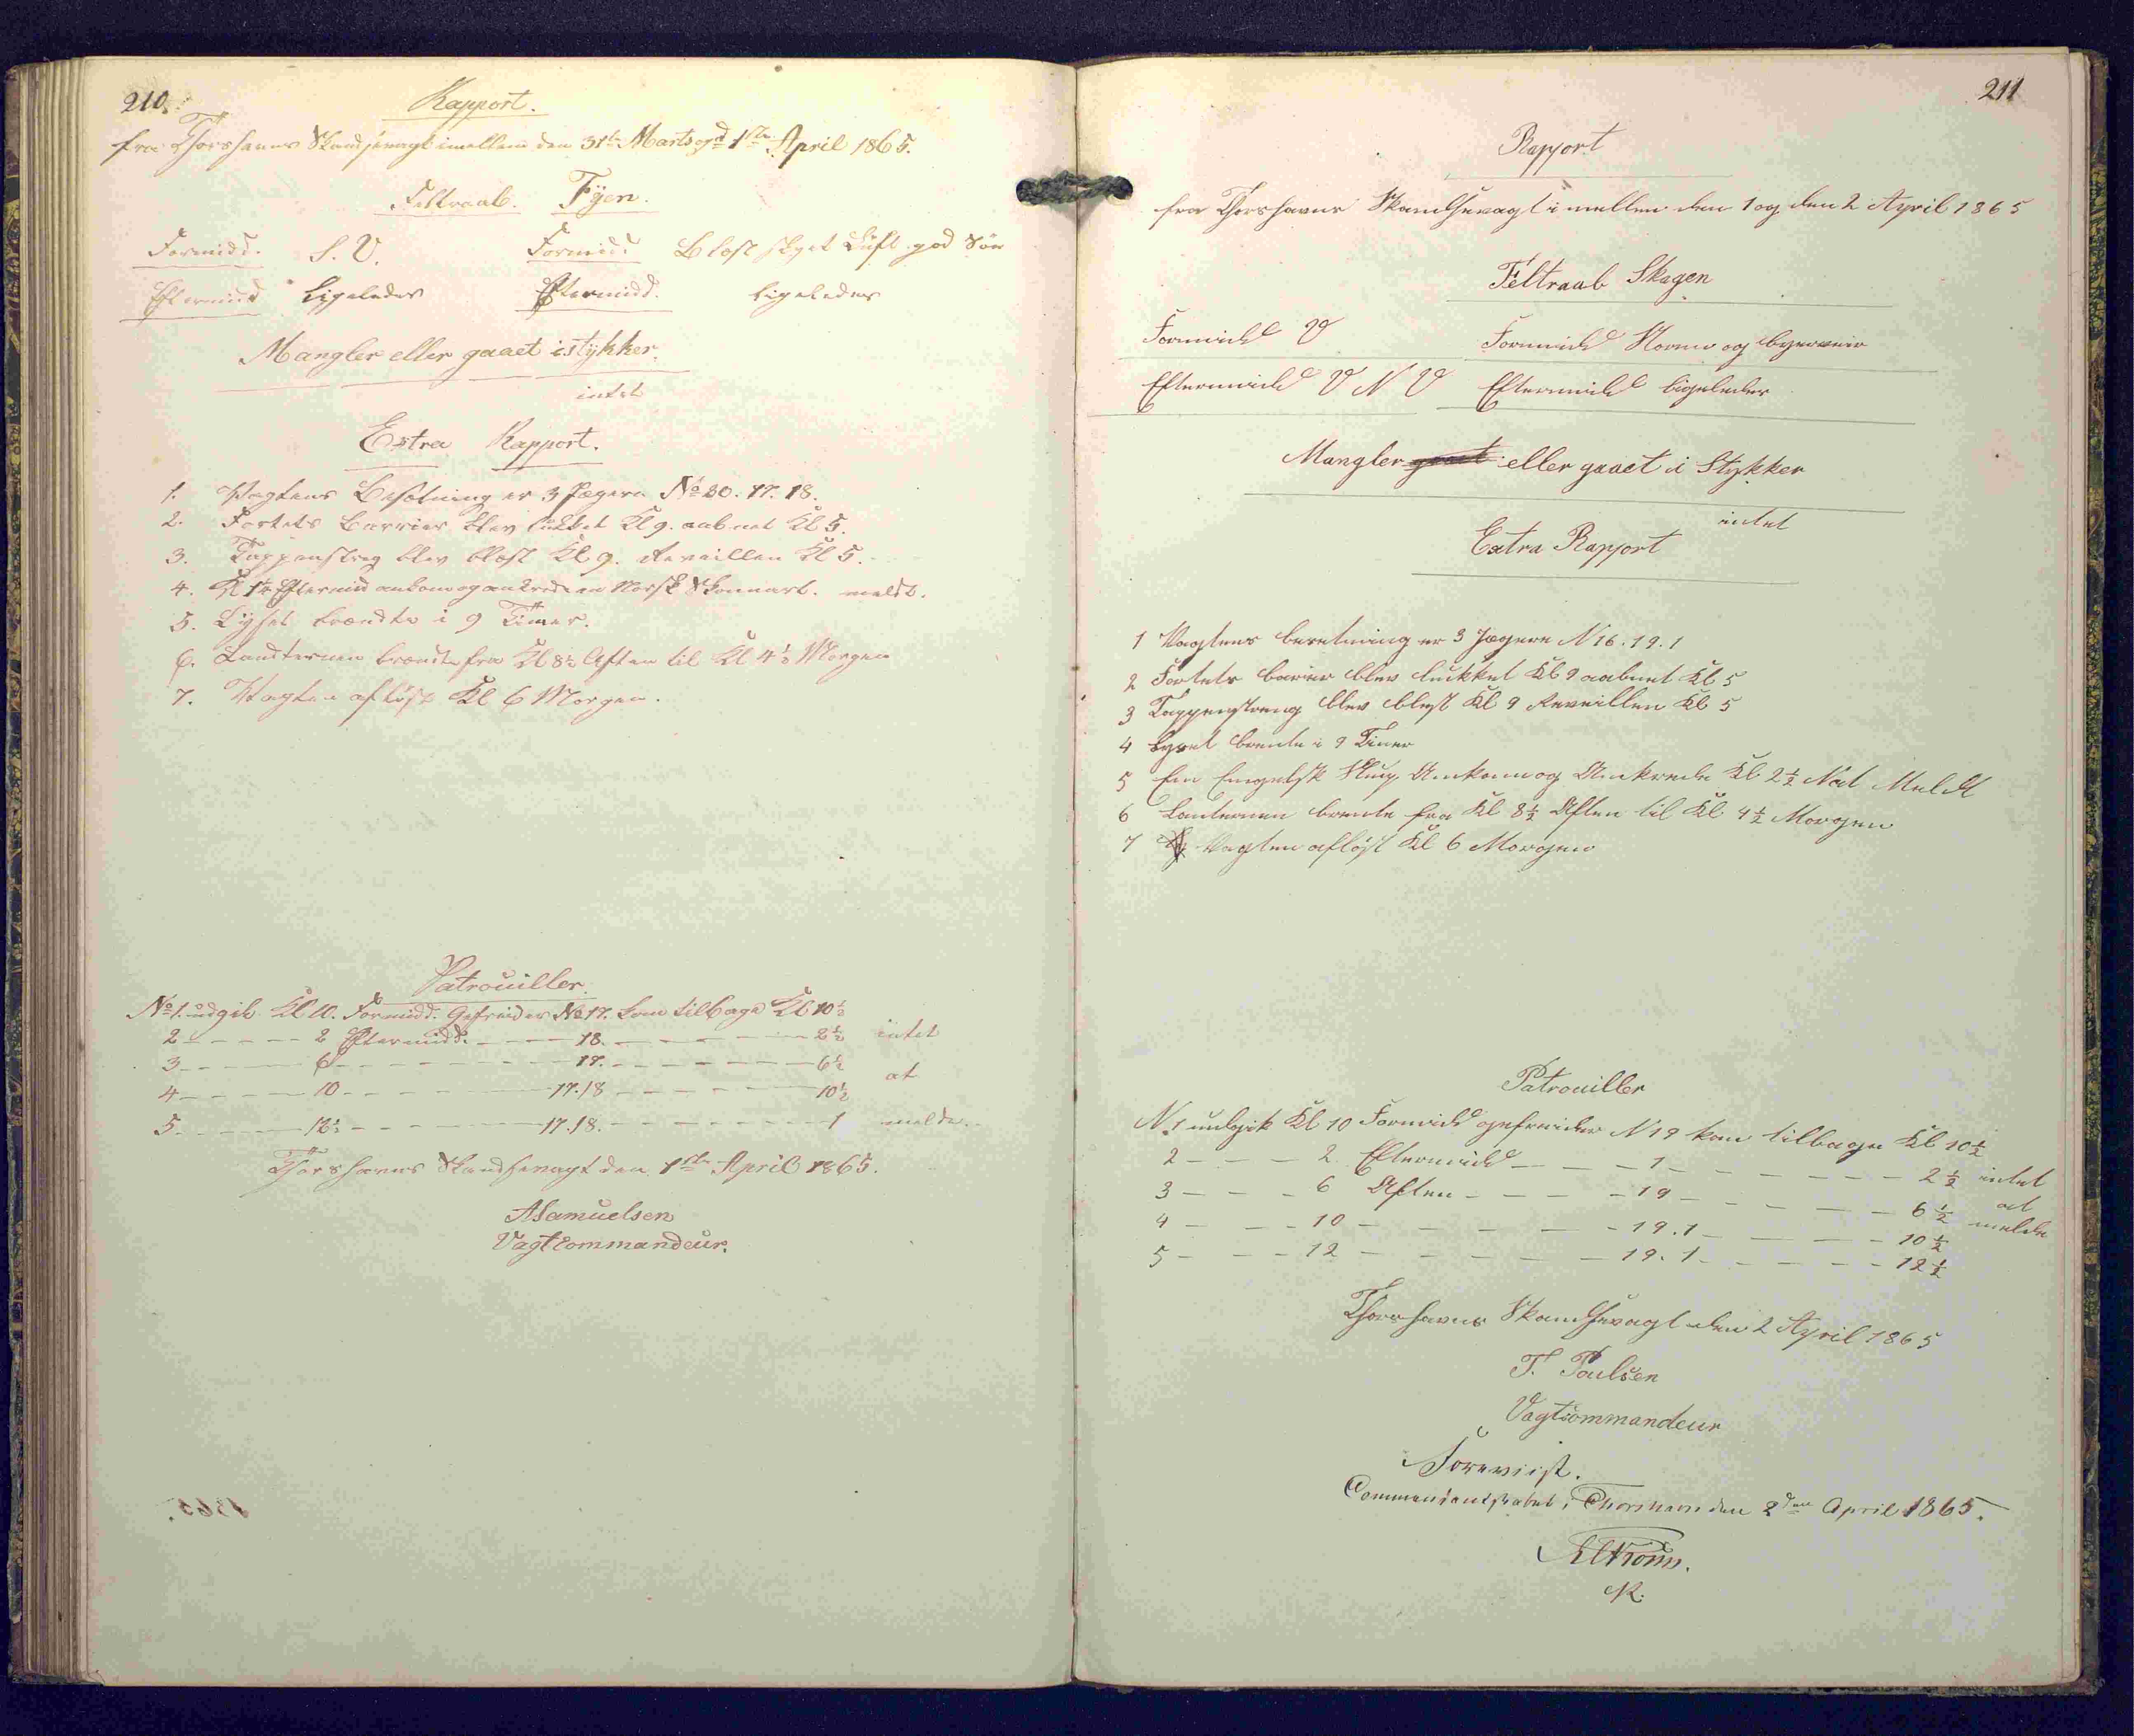 210.
Rapport.
fra Thorshavns Skandsevagt imellem den 31te Marts og d 1ste April 1865.
Feltraab. Fyen.
Formidd. S. V. Formidd Blæst skyet Luft god Sön
Eftermidd Ligeledes Eftermidd. Ligeledes
Mangler eller gaaet istykker.
intet
Extra Rapport.
1. Vagtens Besætning er 3 Jægere No 20. 17. 18.
2. Fortets Barrier blev lukket Kl 9. aabnet Kl 5.
3. Tappenstreg blev blæst Kl 9. Reveillen Kl 5.
4. Kl Eftermid ankom og ankrede en Norsk Skonnart. meldt.
5. Lyset brændte i 9 Timer.
6. Landternen brændte fra Kl 8½ Aften til Kl 4½ Morgen
7. Vagten aflöst Kl 6 Morgen.
Patrouiller.
No 1. udgik Kl 10. Formidd. Gefreider No 17. kom tilbage Kl 10½
2 - - - - - 2 Eftermidd. - - - - 18. - - - - - - - 2½ intet
3 - - - - - 6 - - - - - - - 17. - - - - - - - 6½
at
4 - - - - - 10 - - - - - - 17.18 - - - - - - 10½
5 - - - - - 12½ - - - - - - 17.18. - - - - - - 1 melde.
Thorshavns Skandsevagt den 1ste April 1865.
ASamuelsen
Vagtcommandeur.
211
Rapport
fra Thorshavns Skandsevagt imellem den 1 og den 2 April 1865
Feltraab Skagen
Formidd V Formidd Storm og byeveir
Eftermidd V N V Eftermidd ligeledes
Mangler gaaet eller gaaet i Stykker
intet
Extra Rapport
1 Vagtens besetning er 3 Jægere N 16. 19. 1
2 Fortets barier blev lukket Kl 9 aabnet Kl 5
3 Tappenstreng blev blest Kl 9 Reveillen Kl 5
4 Lyset brente i 9 Timer
5 Em Engelsk Slup Ankom og Ankrede Kl 2½ Nat Meldt
6 Lanternen brente fra Kl 8½ Aften til Kl 4½ Morgen
7 Vagten aflöst Kl 6 Morgen
Patrouiller
N. 1 uudgik Kl 10 Formidd gefreider N 19 kom tilbage Kl 10½
2 - - - 2 Eftermidd - - - 1 - - - - - - - 2½ intet
3 - - - 6 Aften - - - - 19 - - - - - - 6½ at
4 - - - 10 - - - - - 19.1 - - - - - 10½ melde
5 - - - 12 - - - - - 19.1 - - - - - 12½
Thorshavns Skandsevagt den 2 April 1865
T. Poulsen
Vagtcommandeur
Foreviist.
Commandantskabet i Thorshavn den 2den April 1865.